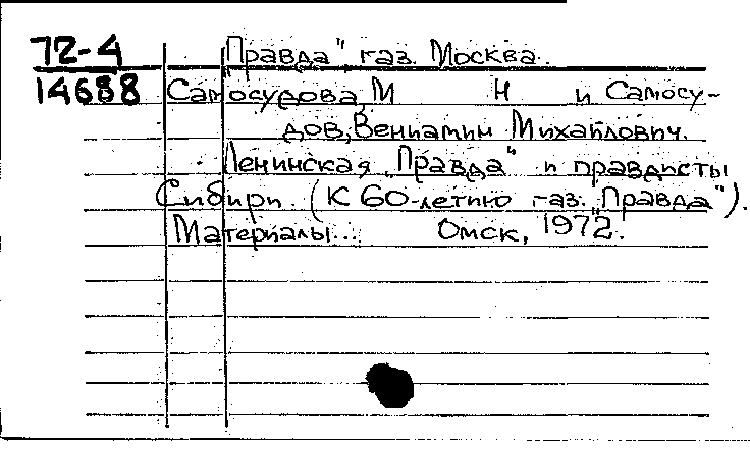 72-4 "Правда" газ. Москва.
14688 Самосудова, М Н и Самосу-
дов, Вениамин Михайлович.
Ленинская "Правда" и правдисты
Сибири. (К 60-летию газ. "Правда").
Материалы... Омск, 1972.